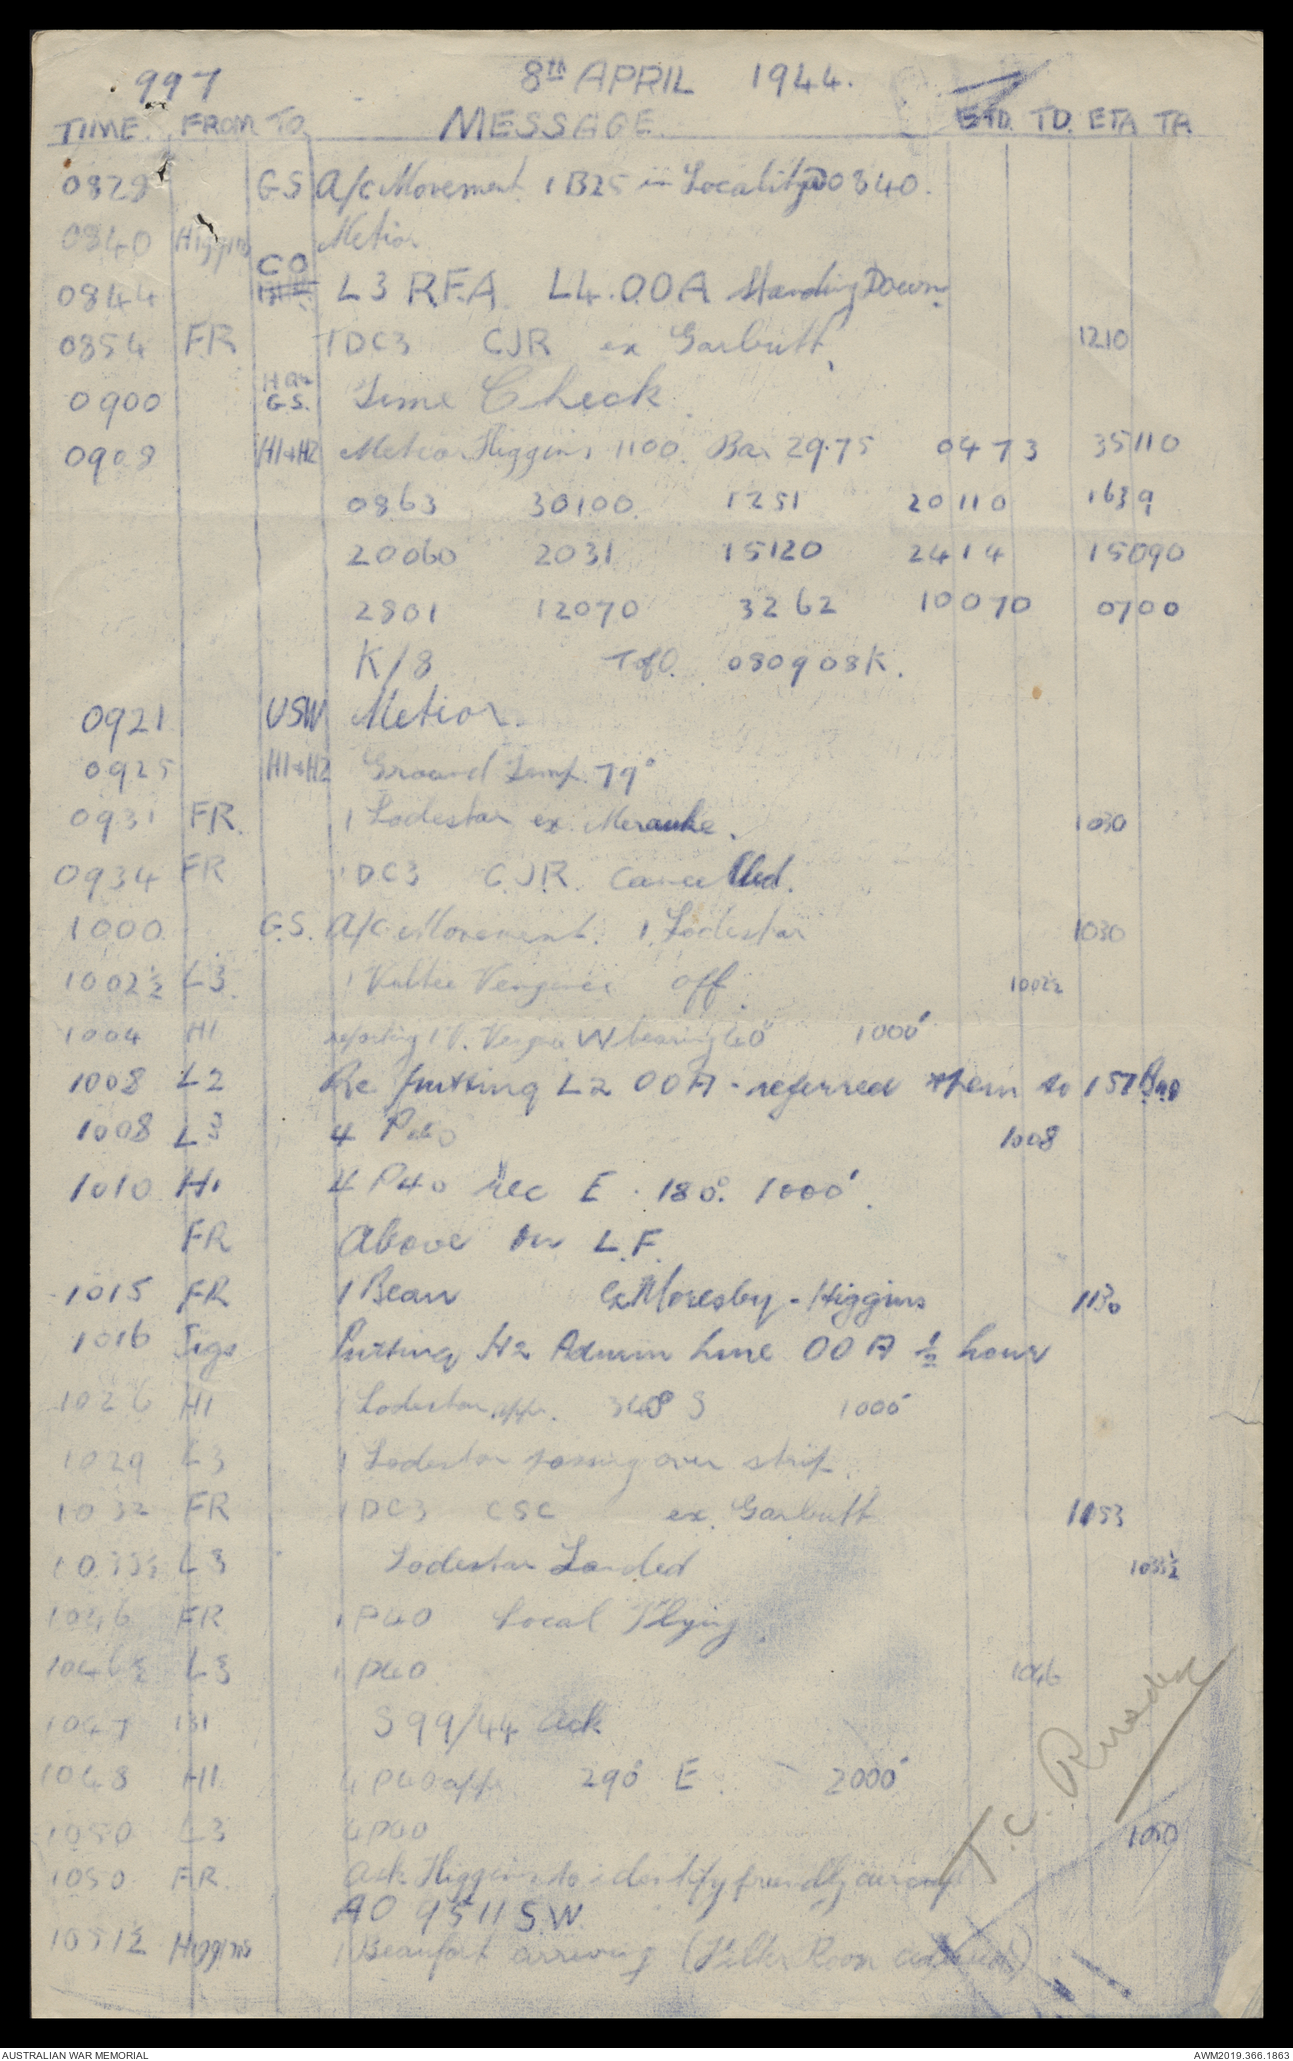 997 8TH APRIL 1944.
TIME. FROM TO MESSAGE. ETD. TD. ETA TA
0828 GS A/c Movement 1 B25 in Locality @ 0840.
0840 Higgins Metior
0844 CO L3 R.F.A. L4.O.O.A Standing Down.
0854 FR 1 DC3 CJR ex Garbutt, 1210
0900 G.S. Time Check.
0908 H1+H2 Meteor Higgins 1100. Bar 29.75 0473 35110
0863 30100 1251 20110 1639
20060 2031 15120 2414 15090
2801 12070 3262 10070 0700
K/8 TofO. 080908K.
0921 USW Metior.
0925 H1+H2 Ground Temp. 79°
0931 FR. 1 Lodestar ex. Merauke. 1030
0934 FR 1 DC3 C.J.R. Cancelled.
1000 G.S. A/c Movement. 1 Lodestar 1030
1002½ L3. 1 Vultee Vengance off. 1002½
1004 H1 reporting 1 V. Vengance W bearing 1000'
1008 L2 Re putting L2 OOA - referred them to 157
1008 L3 4 P40 1008
1010 H1 4 P40 rec E. 180°. 1000'.
FR Above on L.F.
1015 FR 1 Beau ex Moresby - Higgins 1130
1016 Sigs Putting H2 Admin line OOA ½ hour
1026 H1 1 Lodestar app. 340° S 1000'
1029 L3 1 Lodestar passing over strip.
1032 FR 1 DC3 CSC ex. Garbutt 1153
1033½ L3 Lodestar Landed 1033½
1046 FR 1 P40 Local Flying.
1046½ L3 1 P40 1046
1047 S 99/44 Ack
1048 H1. 4 P40 app. 290° E. 2000'
1050 L3 4 P40 1050
1050 FR. Ask Higgins to identify friendly
AO 9511 S.W.
1051½ Higgins 1 Beaufort arriving (Filter Room
T.C.
AUSTRALIAN WAR MEMORIAL AWM2019.366.1863